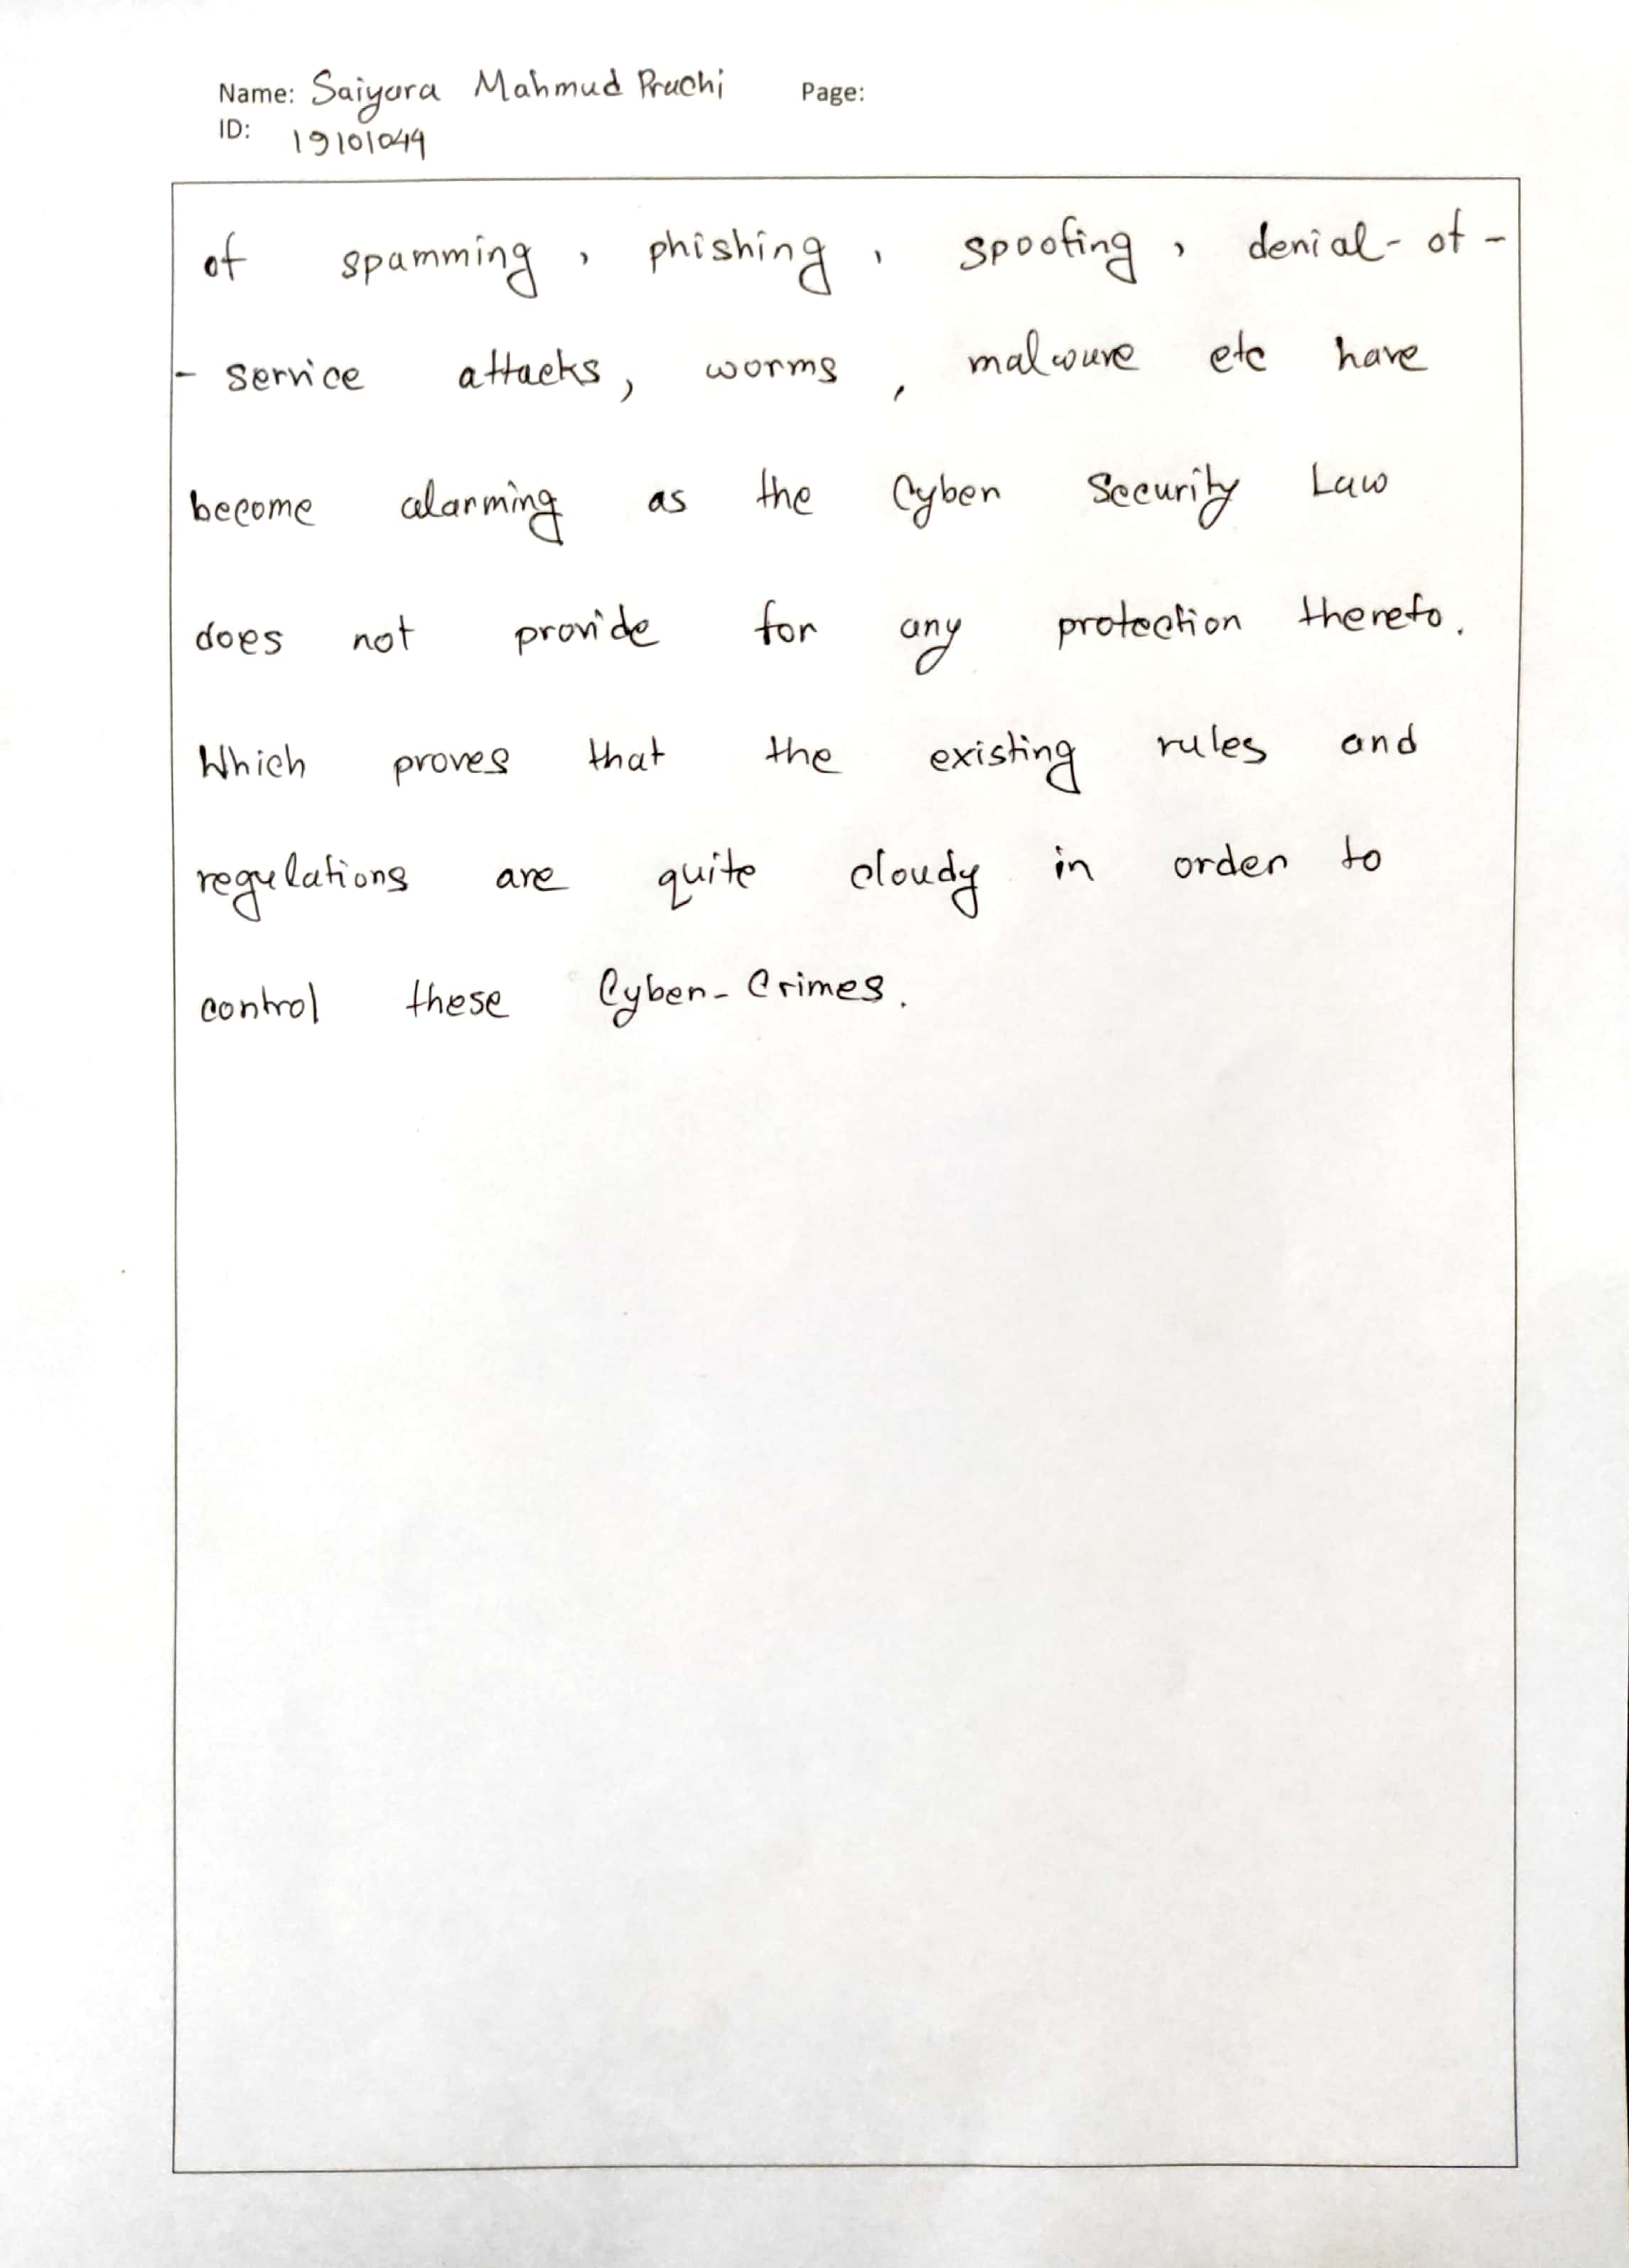 Name: Saiyara Mahmud Prachi Page:
ID: 19101049
of spamming, phishing, spoofing, denial-of-
- service attacks, worms, malware etc have
become alarming as the Cyber Security Law
does not provide for any protection thereto.
Which proves that the existing rules and
regulations are quite cloudy in order to
control these Cyber-Crimes.